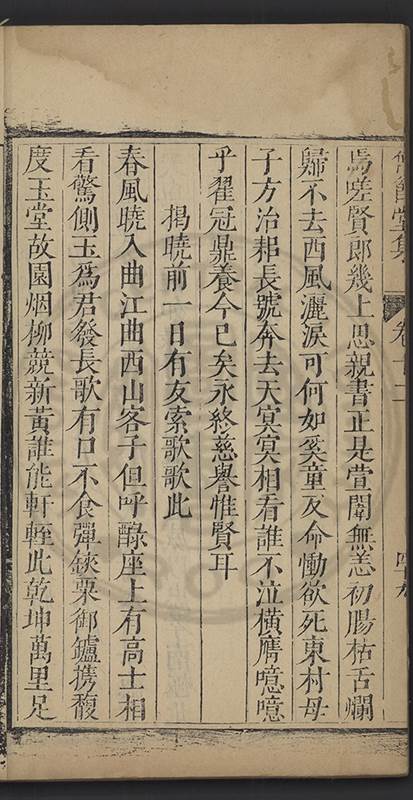 堂集 卷十二
焉嗟賢郎幾上思親書正是萱闈無恙初腸枯舌爛
歸不去西風灑淚可何如奚童反命慟欲死東村母
子方治耜長號奔去天冥冥相看誰不泣橫膺噫噫
乎翟冠鼎養今已矣永終慈譽惟賢耳
揭曉前一日有友索歌歌此
春風曉入曲江曲西山客子但呼醁座上有高士相
看驚側玉為君發長歌有口不食彈鋏粟御鑪攜馥
度玉堂故園烟柳競新黃誰能軒輊此乾坤萬里足